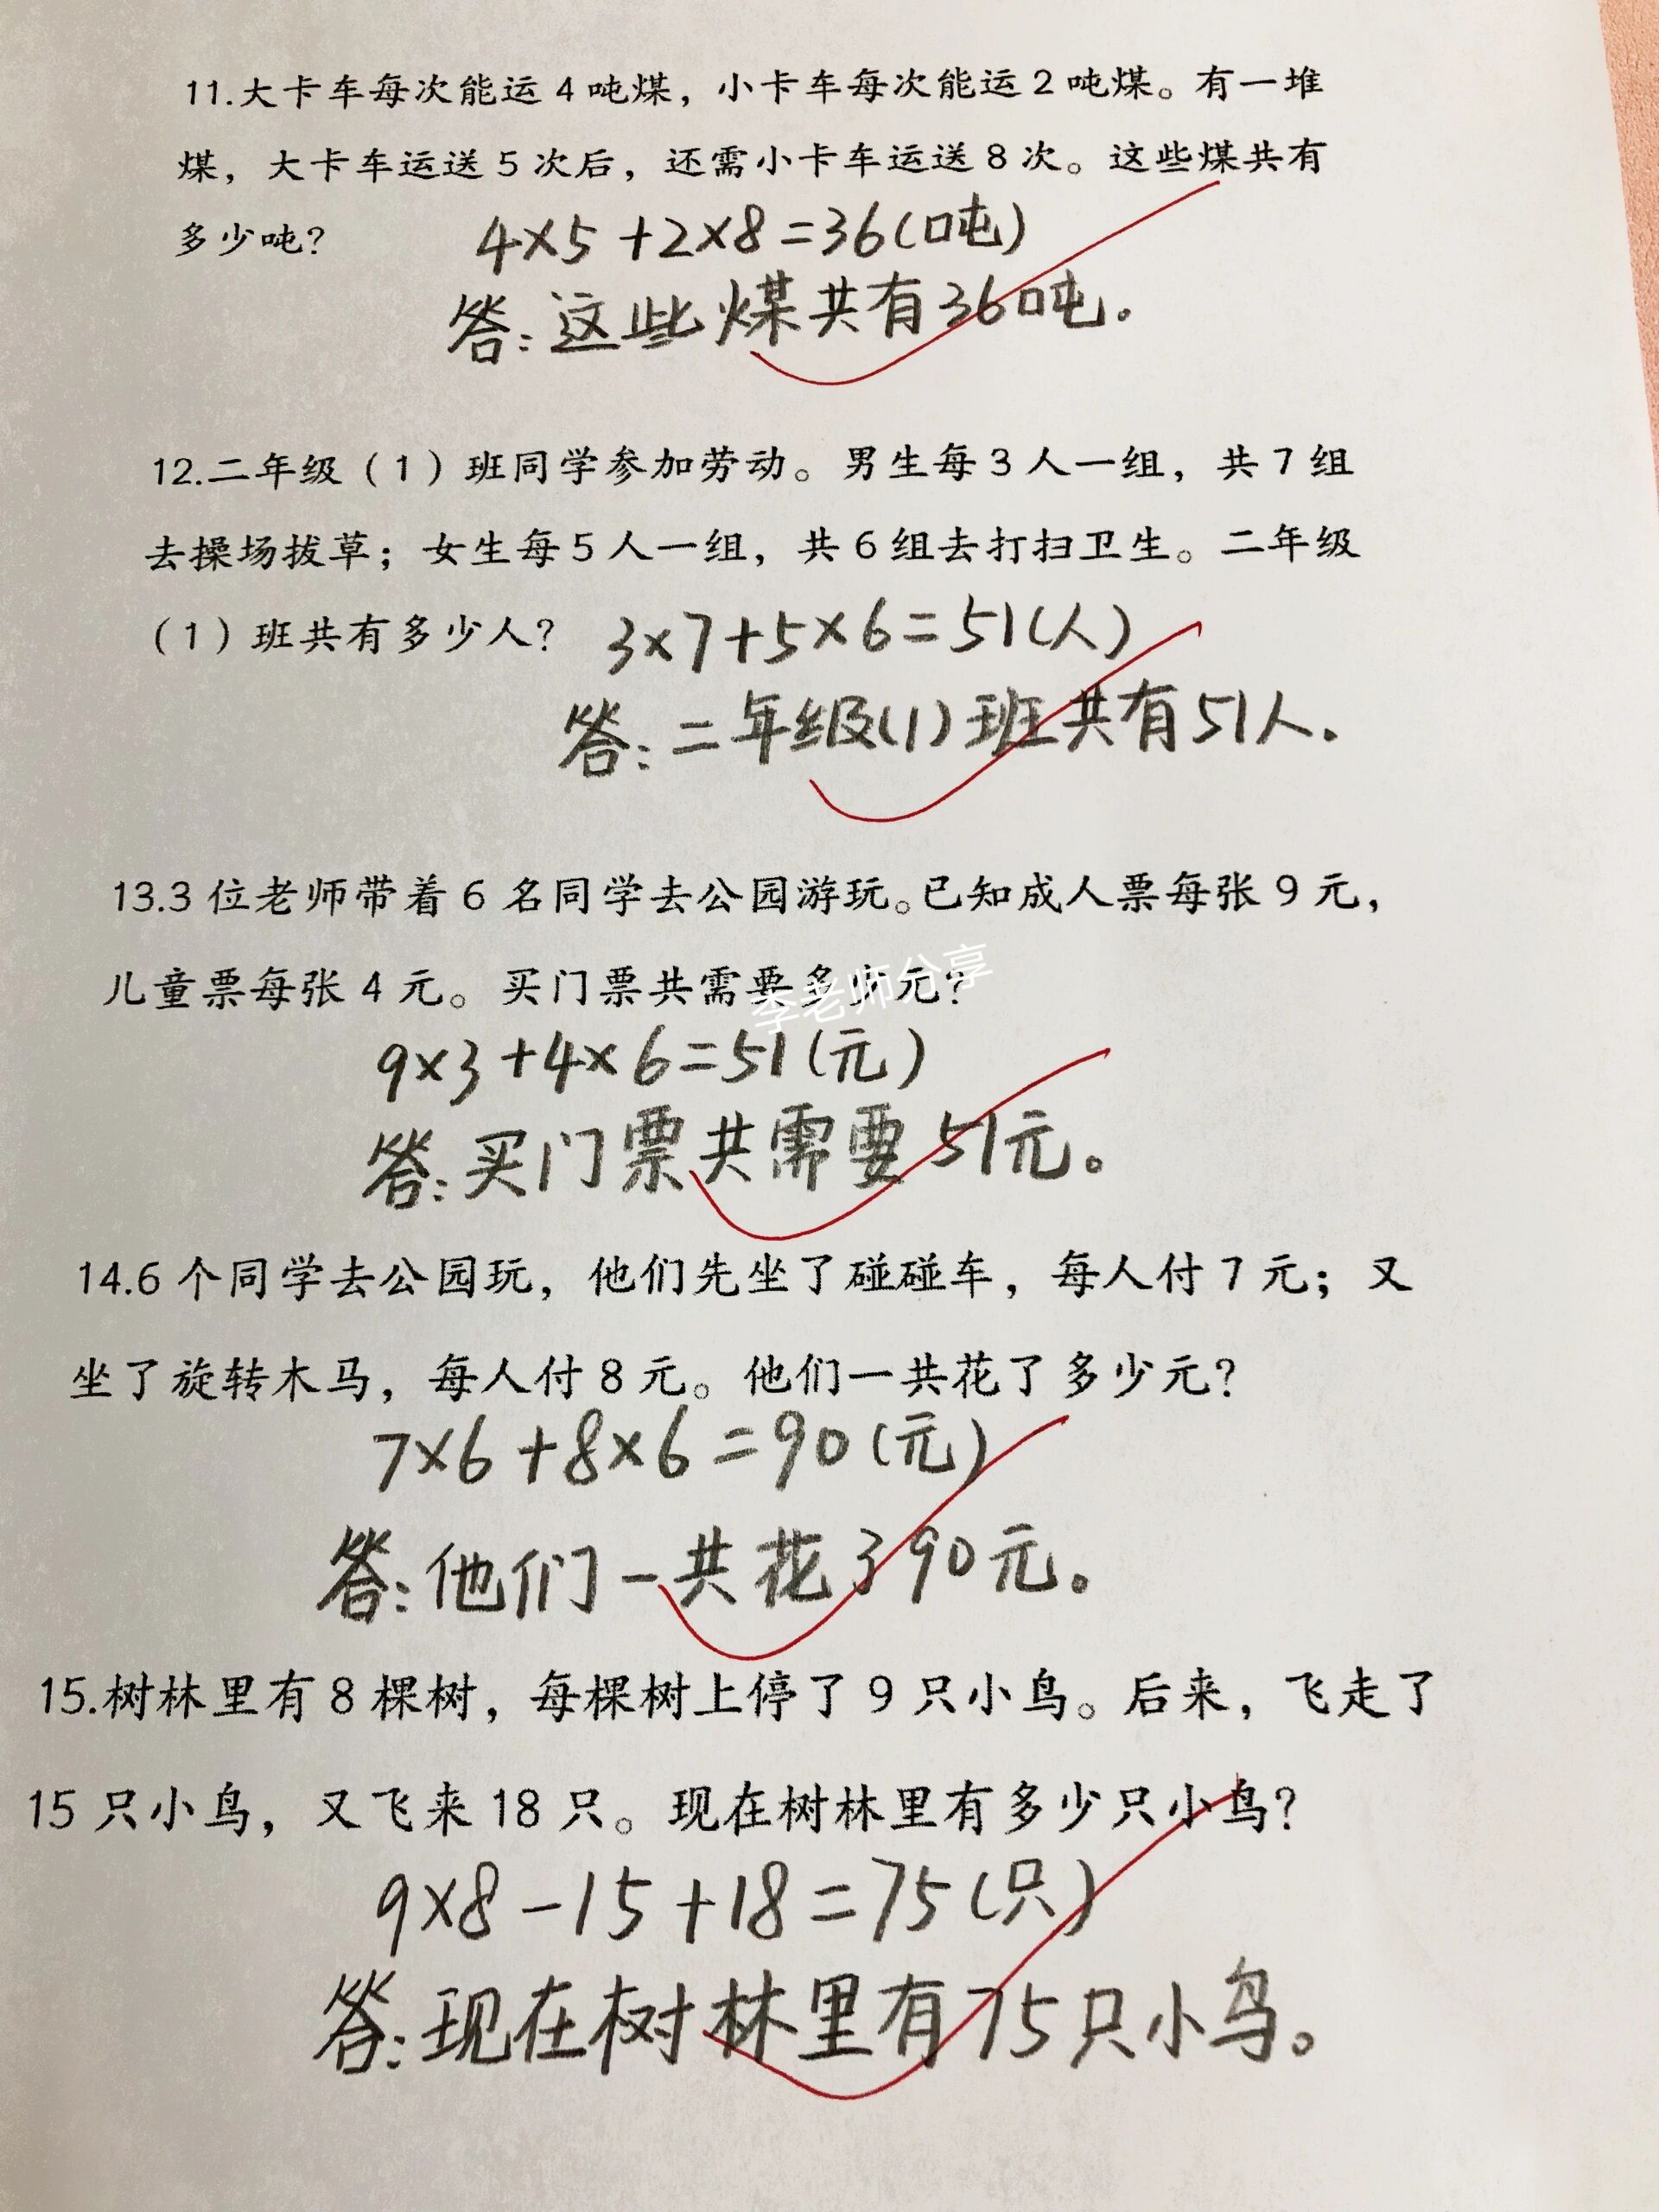 11.大卡车每次能运4吨煤，小卡车每次能运2吨煤。有一堆
煤，大卡车运送5次后，还需小卡车运送8次。这些煤共有
多少吨？ 4×5+2×8=36(吨)
答:这些煤共有36吨.
12.二年级（1）班同学参加劳动。男生每3人一组，共7组
去操场拔草；女生每5人一组，共6组去打扫卫生。二年级
（1）班共有多少人？ 3×7+5×6=51(人)
答:二年级(1)班共有51人.
13.3位老师带着6名同学去公园游玩。已知成人票每张9元，
儿童票每张4元。买门票共需要多少元？
李老师分享
9×3+4×6=51(元)
答:买门票共需要51元。
14.6个同学去公园玩，他们先坐了碰碰车，每人付7元；又
坐了旋转木马，每人付8元。他们一共花了多少元？
7×6+8×6=90(元)
答:他们一共花了90元。
15.树林里有8棵树，每棵树上停了9只小鸟。后来，飞走了
15只小鸟，又飞来18只。现在树林里有多少只小鸟？
9×8-15+18=75(只)
答:现在树林里有75只小鸟。